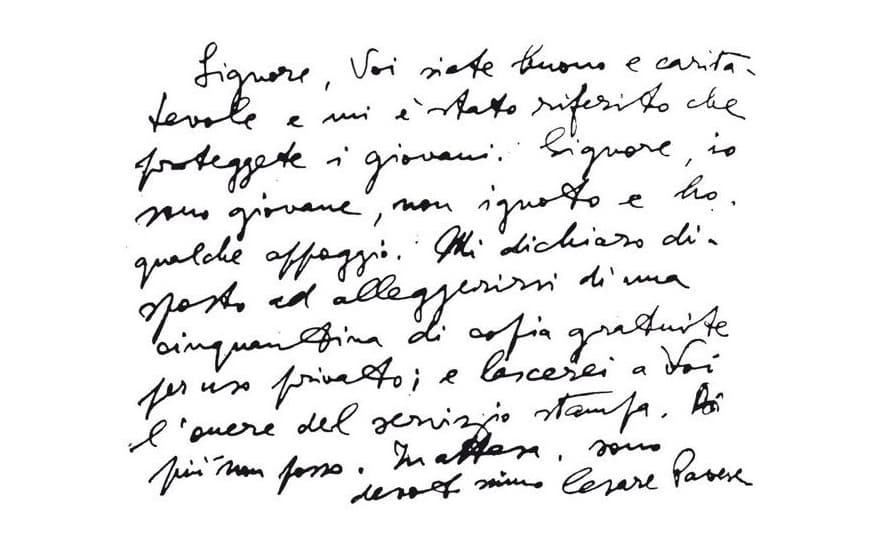 Signore, Voi siete buono e carita-
tevole e mi è stato riferito che
proteggete i giovani. Signore, io
sono giovane, non ignoto e ho
qualche appoggio. Mi dichiaro di-
sposto ad alleggerirvi di una
cinquantina di copie gratuite
per uso privato; e lascerei a Voi
l'onere del servizio stampa. Di
più non posso. In attesa, sono
devotissimo Cesare Pavese